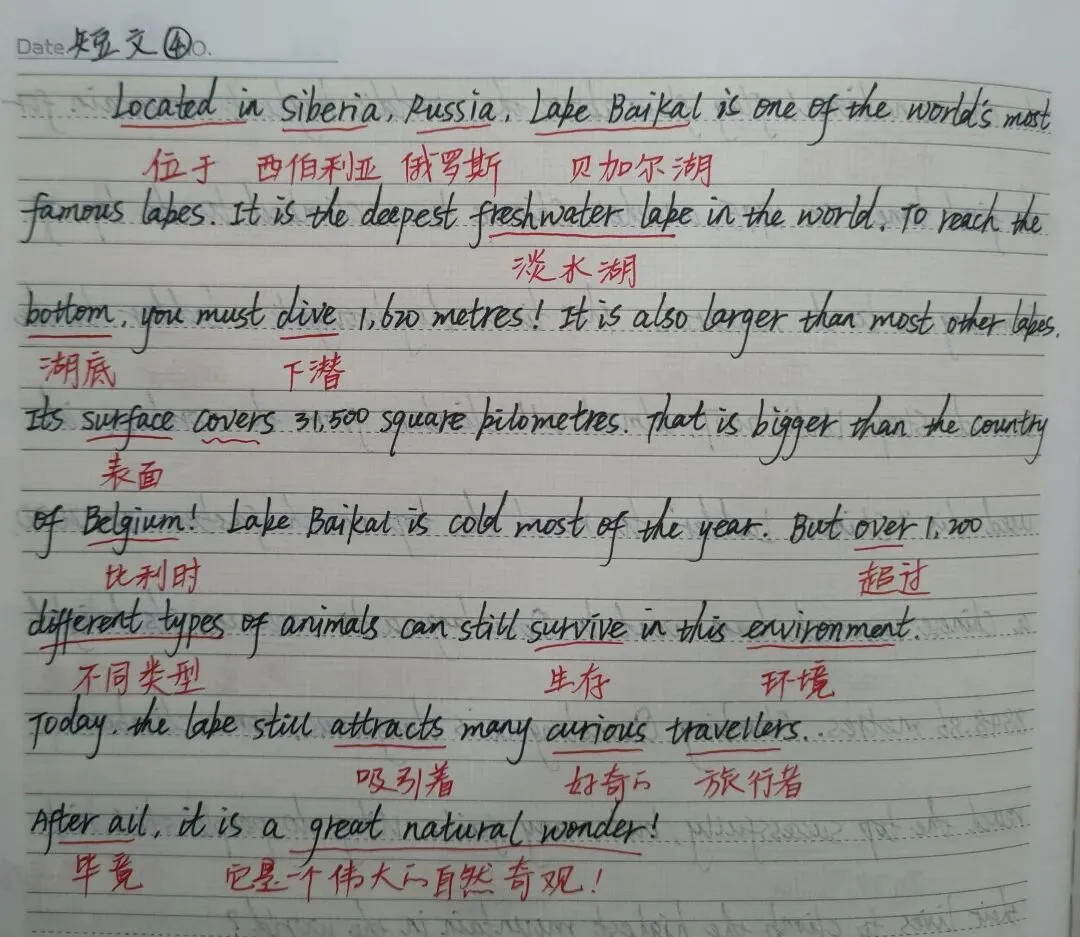 Date. 短文④ O.
Located in Siberia, Russia, Lake Baikal is one of the world's most
位于 西伯利亚 俄罗斯 贝加尔湖
famous lakes. It is the deepest freshwater lake in the world. To reach the
淡水湖
bottom, you must dive 1,620 metres! It is also larger than most other lakes.
湖底 下潜
Its surface covers 31,500 square kilometres. That is bigger than the country
表面
of Belgium! Lake Baikal is cold most of the year. But over 1,200
比利时 超过
different types of animals can still survive in this environment.
不同类型 生存 环境
Today, the lake still attracts many curious travellers.
吸引着 好奇的 旅行者
After all, it is a great natural wonder!
毕竟 它是一个伟大的自然奇观!